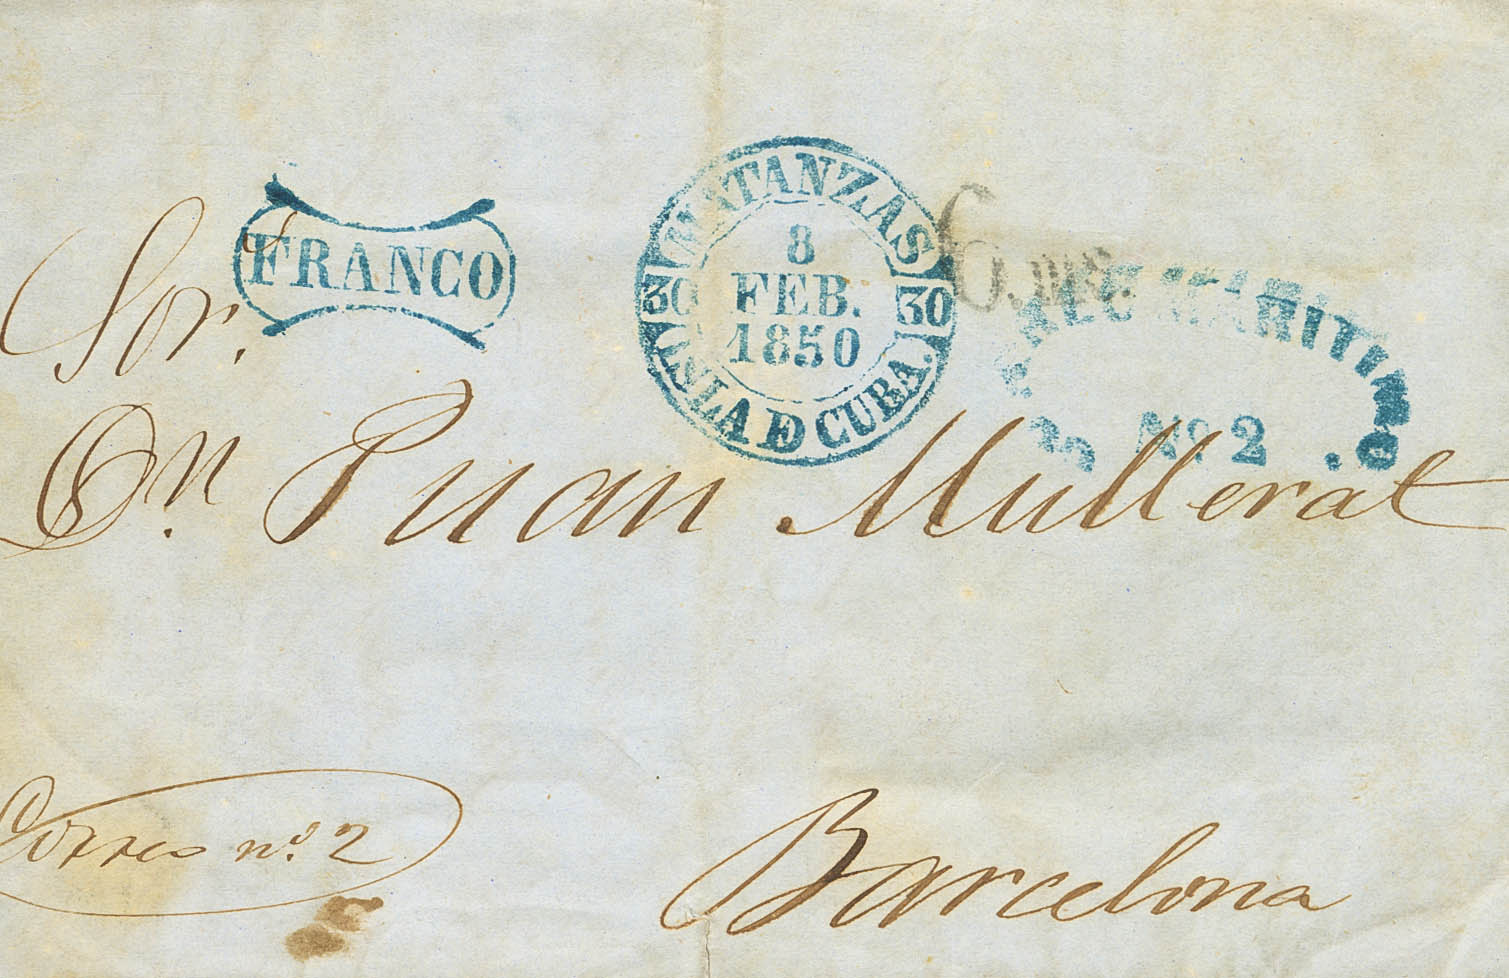 FRANCO
MATANZAS
8
FEB.
1850
30
30
ISLA DE CUBA.
6
MARITIMO
Nº 2
Sor.
Dn. Juan Mullerat
Correo nº. 2
Barcelona